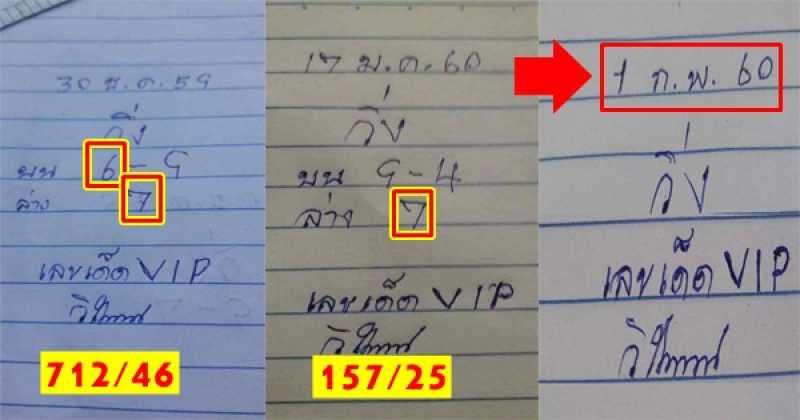 30 ธ.ค.59
วิ่ง
บน 6-9
ล่าง 7
เลขเด็ด VIP
712/46
17 ม.ค.60
วิ่ง
บน 9-4
ล่าง 7
เลขเด็ด VIP
157/25
1 ก.พ. 60
วิ่ง
เลขเด็ด VIP